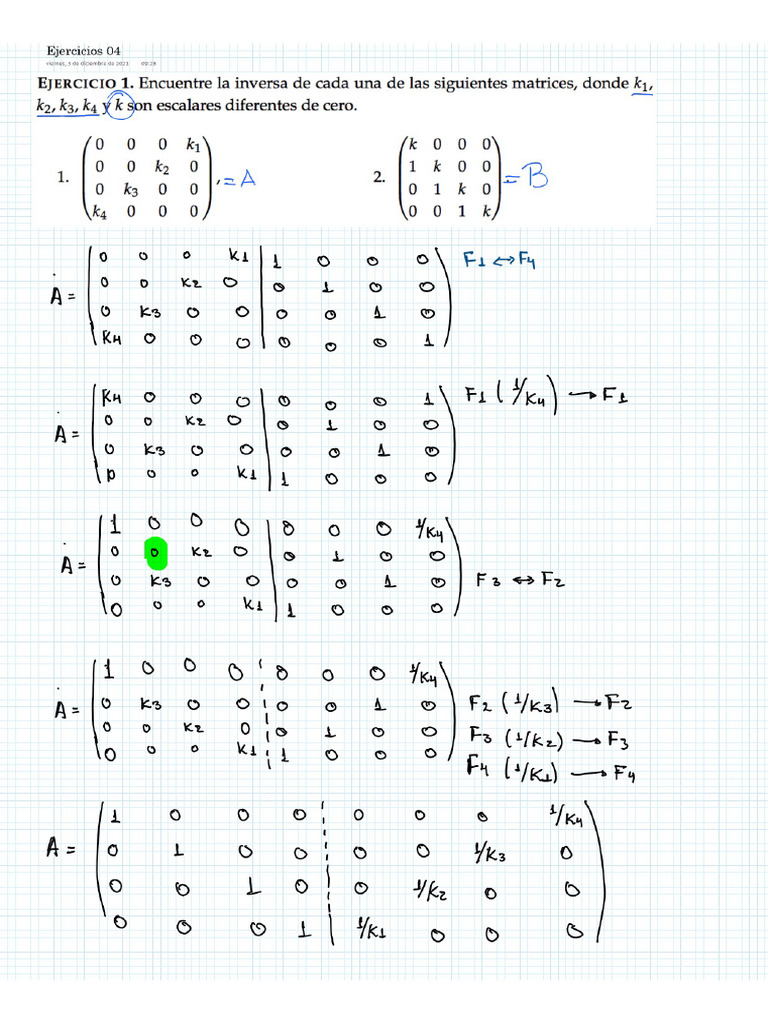 Ejercicios 04
viernes, 3 de diciembre de 2021 09:28
EJERCICIO 1. Encuentre la inversa de cada una de las siguientes matrices, donde k₁,
k₂, k₃, k₄ y k son escalares diferentes de cero.
1. (0 0 0 k₁
0 0 k₂ 0
0 k₃ 0 0
k₄ 0 0 0), = A
2. (k 0 0 0
1 k 0 0
0 1 k 0
0 0 1 k) = B
A = (0 0 0 K1 | 1 0 0 0
0 0 K2 0 | 0 1 0 0
0 K3 0 0 | 0 0 1 0
K4 0 0 0 | 0 0 0 1) F1 ↔ F4
A = (K4 0 0 0 | 0 0 0 1
0 0 K2 0 | 0 1 0 0
0 K3 0 0 | 0 0 1 0
0 0 0 K1 | 1 0 0 0) F1 (1/K4) → F1
A = (1 0 0 0 | 0 0 0 1/K4
0 0 K2 0 | 0 1 0 0
0 K3 0 0 | 0 0 1 0
0 0 0 K1 | 1 0 0 0) F3 ↔ F2
A = (1 0 0 0 | 0 0 0 1/K4
0 K3 0 0 | 0 0 1 0
0 0 K2 0 | 0 1 0 0
0 0 0 K1 | 1 0 0 0)
F2 (1/K3) → F2
F3 (1/K2) → F3
F4 (1/K1) → F4
A = (1 0 0 0 | 0 0 0 1/K4
0 1 0 0 | 0 0 1/K3 0
0 0 1 0 | 0 1/K2 0 0
0 0 0 1 | 1/K1 0 0 0)